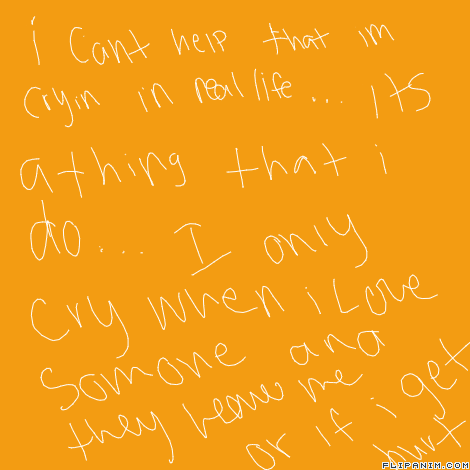 i cant help that im
cryin in real life... its
a thing that i
do... I only
cry when i Love
somone and
they leave me
or if i get
hurt
FLIPANIM.COM